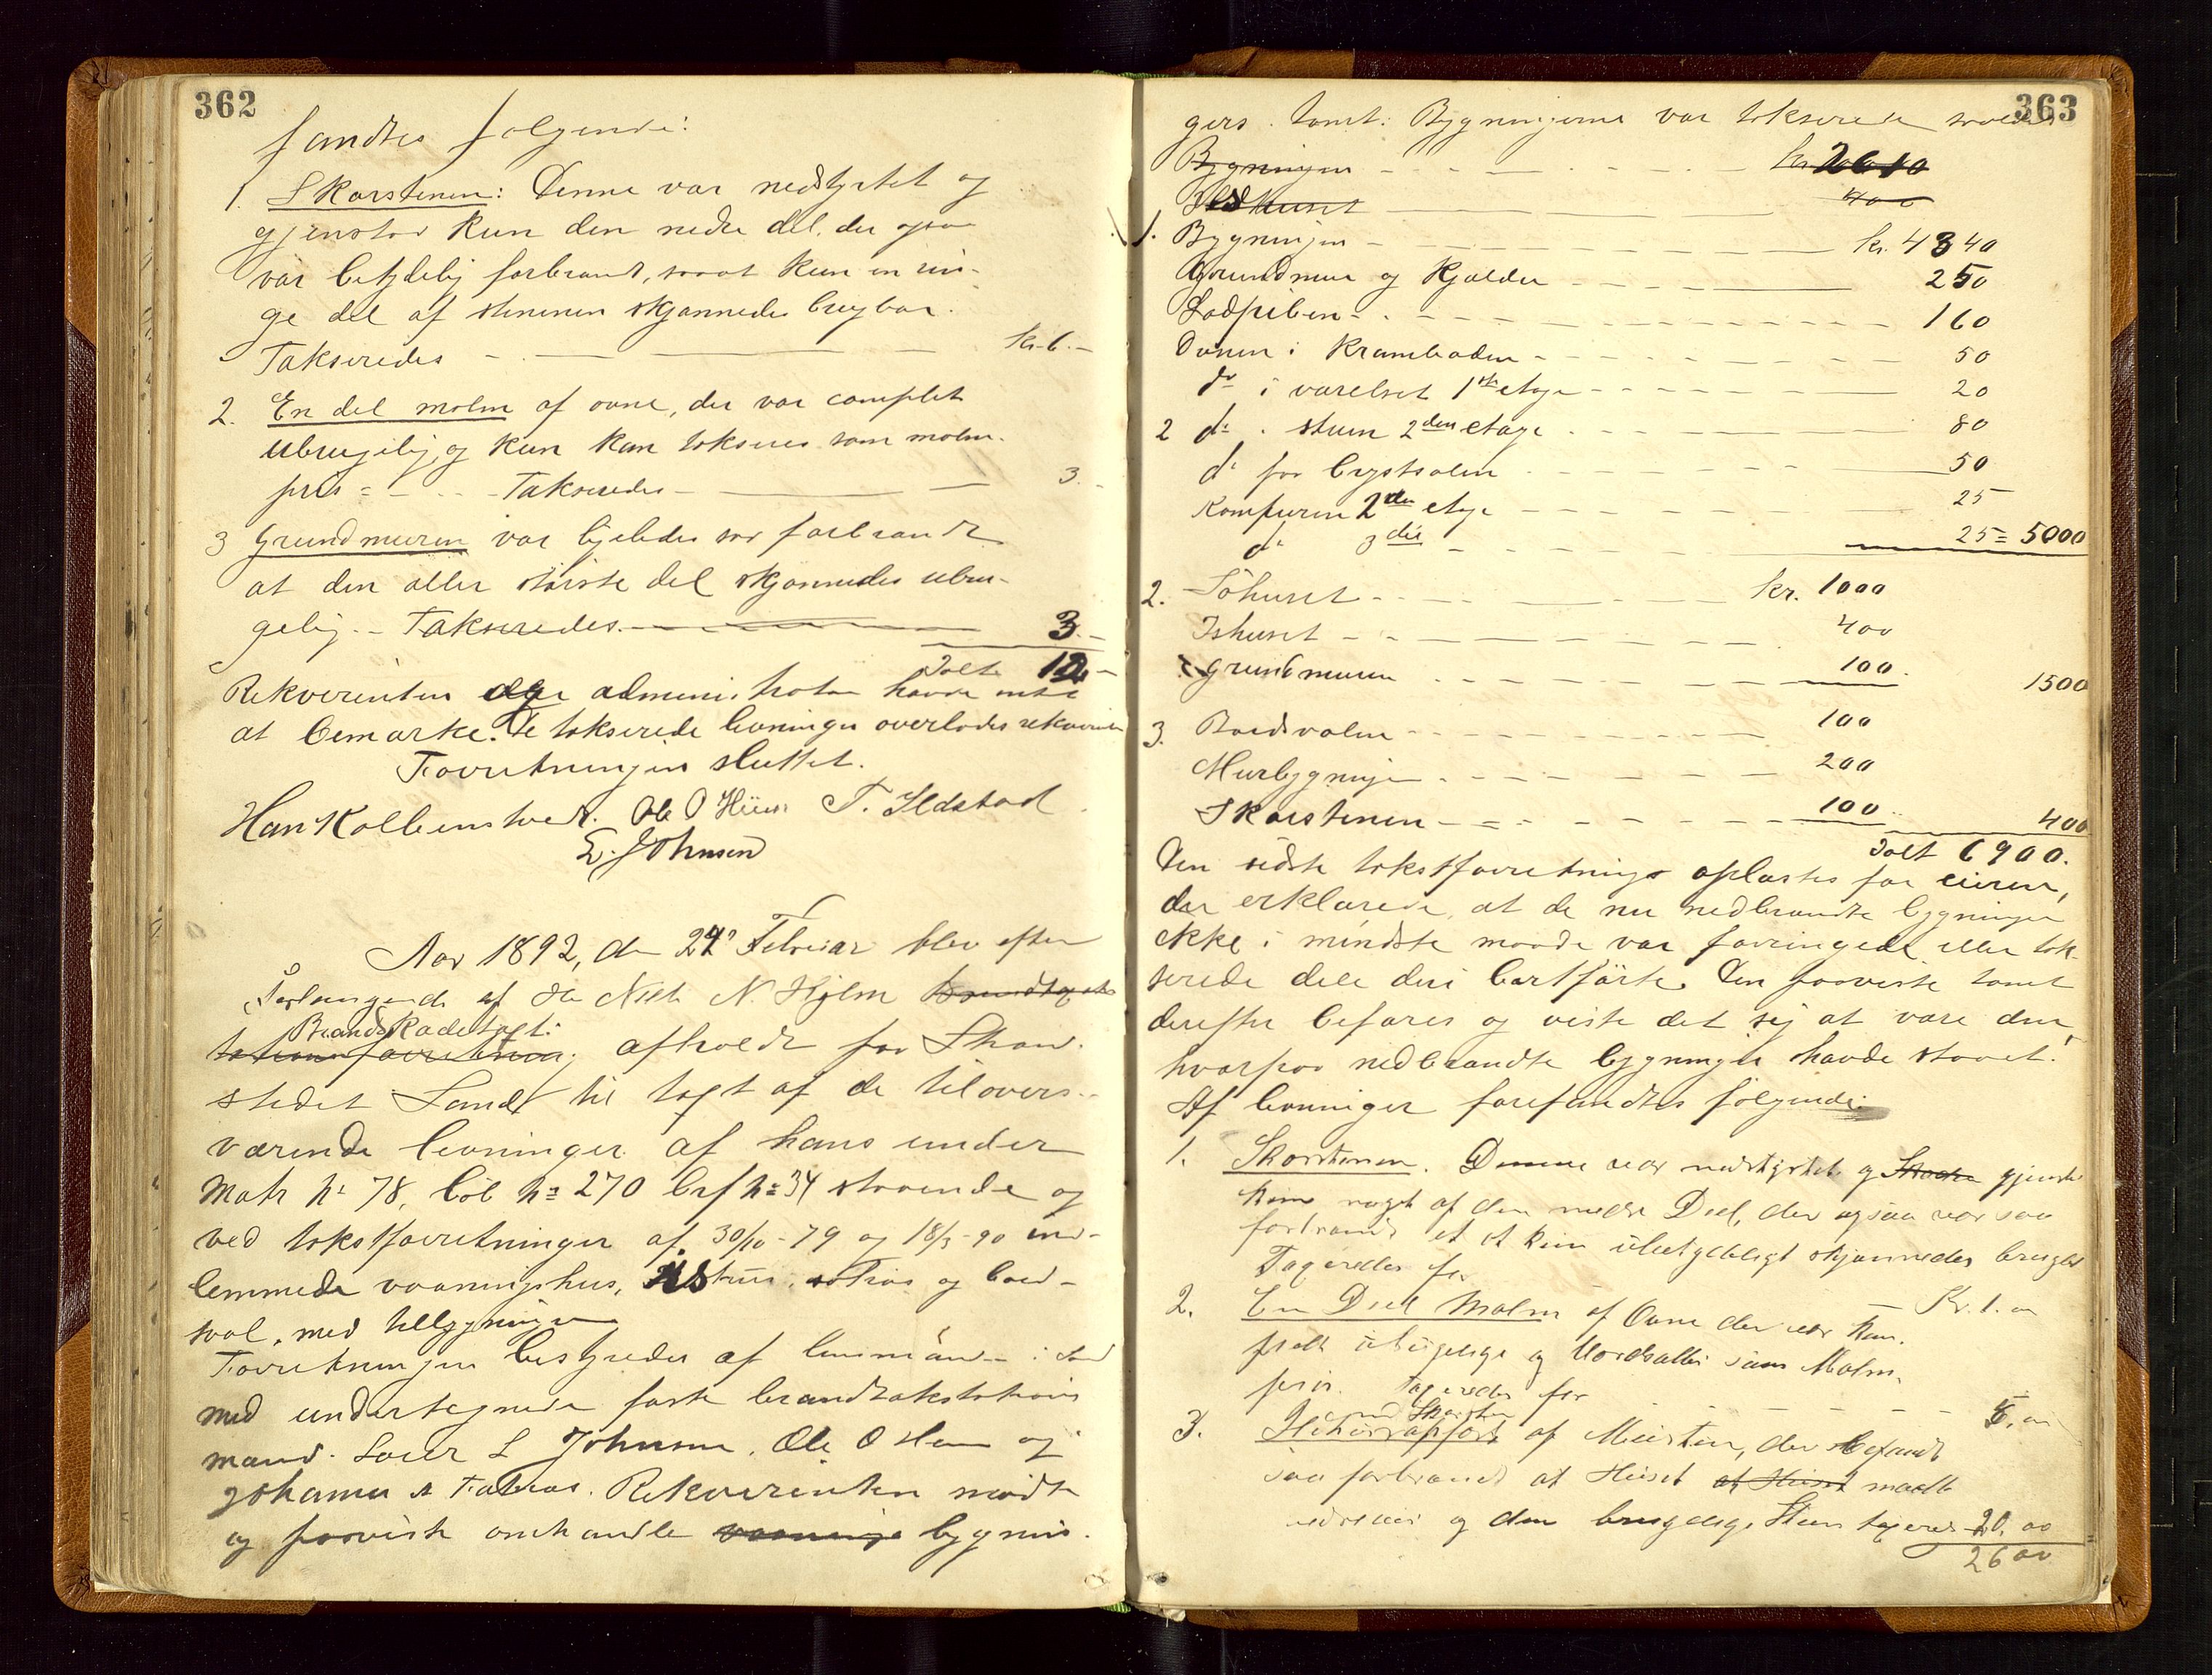 362
fandtes følgende:
1. Skorstenen: Denne var nedstyrtet og
gjenstod kun den nedre del, der ogsaa
var betydelig forbrandt, saaat kun en rin-
ge del af stenene skjønnedes brugbar.
Takseredes - kr. 6.-
2. En del malm af ovne, der var complet
ubrugelig og kun kan takseres som malm-
pris - - - Takseredes - 3.-
3 Grundmuren var ligeledes saa forbrandt
at den aller største del skjønnedes ubru-
gelig. - Takseredes. 3.-
Ialt 12.-
Rekvirenten administrator havde intet
at bemærke. De takserede levninger overlodes rekvirenten
Forretningen sluttet.
Hans Kolbenstvedt. Ole O Huus T. Ildstad
E. Johnsen
Aar 1892, den 24' Februar blev efter
Forlangende af Hr Niels N. Hjelm
Brandskadetagt:
afholdt paa Strand-
stedet Sand til tagt af de tilovers-
værende levninger af hans under
Matr No 78, löb No 270 brf No 34 staaende og
ved takstforretninger af 30/10-79 og 18/3-90 ind-
lemmede vaaningshus, Ishus, søhus og bord-
sval, med tilbygninger
Forretningen bestyredes af lensmanden i Sand
med undertegnede faste brandtakstations
mænd. Soier L Johnsen, Ole O Huus og
Johannes Rekvirenten mødte
og paaviste omhandlede vaanings bygnin-
363
gers tomt: Bygningerne var takserede saaledes
Bygningen - kr. 2610
Ildhuset 400
1. Bygningen - kr. 4340
Grundmur og Kjelder 250
Ladpiben 160
Ovnen i Kramboden 50
do i værelset 1ste etage 20
2 do i stuen 2den etage 80
do paa brystsalen 50
Komfuren 2den etage 25
do 3die 25 = 5000
2. Söhuset kr. 1000
Ishuset 400
grundmuren 100. 1500
3. Bordsvalen 100
Murbygningen 200
Skorstenen 100 400
Ialt 6900.
Den sidste takstforretning oplæstes for eieren,
der erklærede, at de nu nedbrandte bygninger
ikke i mindste maade var forringede eller tak-
serede dele deri bortførte. Den paaviste tomt
derefter befares og viste det sig at være den,
hvorpaa nedbrandte bygninger havde staaet.
Af levninger forefandtes følgende:
1. Skorstenen. Denne var nedstyrtet og gjenstod
kun noget af den nedre Deel, der ogsaa var saa
forbrandt at kun ubetydeligt skjønnedes brugbar
Tageredes for Kr. 1. 00
2. En Deel Malm af Ovne der var kom-
plet ubrugelige og Værdsattes som Malm-
pris. Tageredes for 5. 00
3. af Mursten, der befandtes
saa forbrandt at Huset at Huset maatte
nedrives og den brugelige Steen tageres 20, 00
26 00